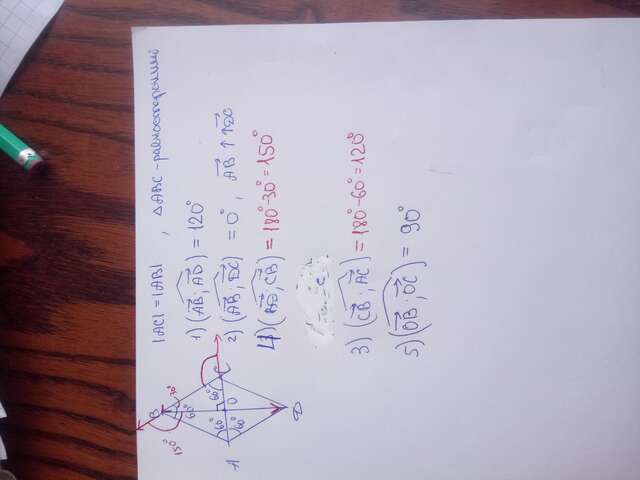 |AC| = |AB| , △ABC - равносторонний
1) (AB⃗ ; AD⃗) = 120°
2) (AB⃗ ; DC⃗) = 0° , AB⃗ ↑↑ DC⃗
4) (BD⃗ ; CB⃗) = 180°-30° = 150°
3) (CB⃗ ; AC⃗) = 180°-60° = 120°
5) (OB⃗ ; OC⃗) = 90°
B
150°
30°
60°
C
60°
60°
O
60°
A
D